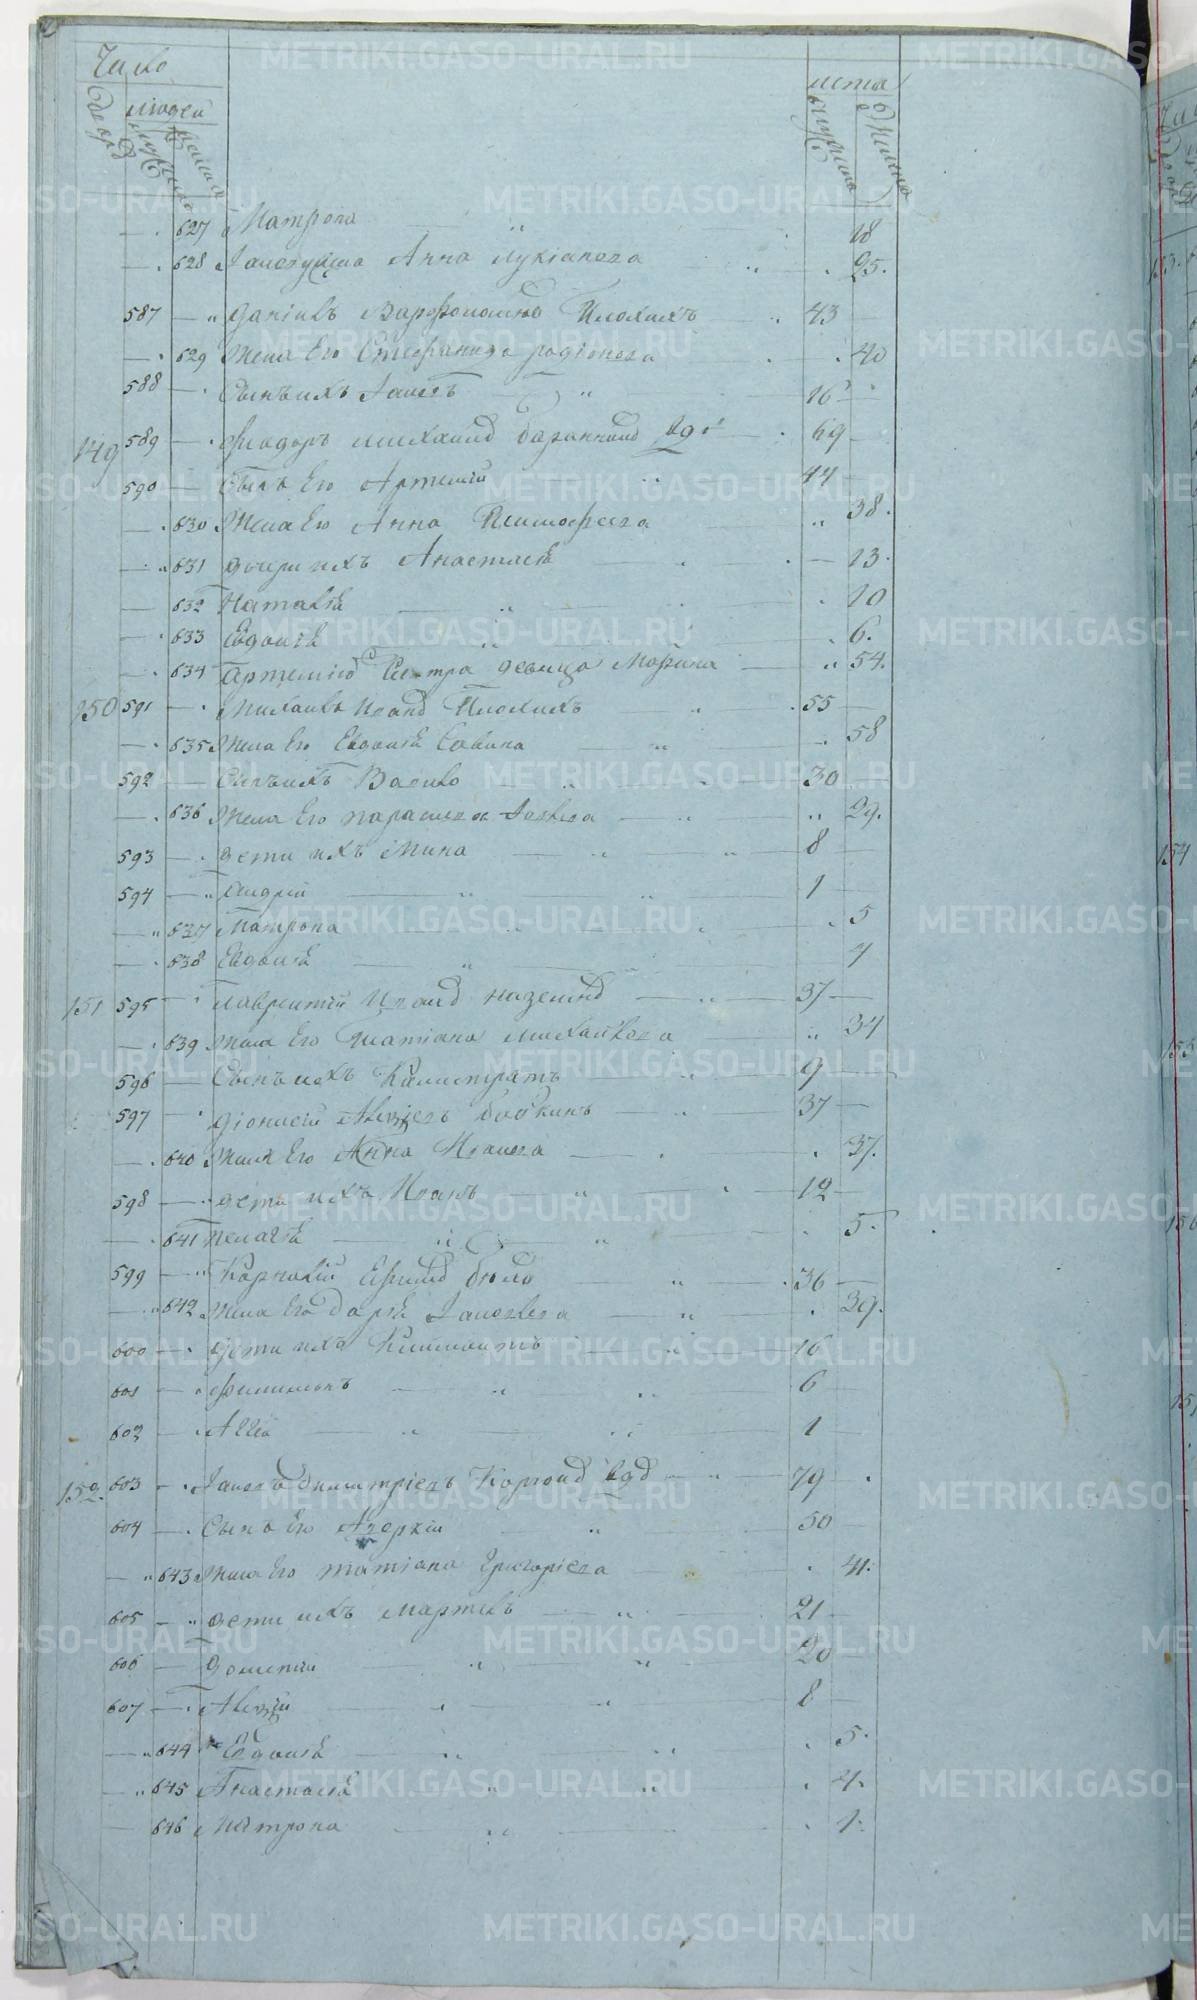 Число
людей
лета
627 Матрона 18
628 Анна Лукіанова 25.
587 Даніилъ Плохихъ 43
629 Жена Его Стефанида родіонова 40
588 Сынъ ихъ Іаковъ 16
149 589 Феодоръ михаилов вдов 69
590 Сынъ Его Артемій 44
630 Жена Его Анна Тимофеева 38.
631 дочери ихъ Анастасія 13.
632 Наталія 10
633 Евдокія 6.
634 Артемію сестра девица Марина 54.
150 591 Михаилъ Иванов Плохихъ 55
635 Жена Его Евдокія Савина 58
592 Сынъ ихъ Василий 30
636 Жена Его параскева 29.
593 дети ихъ Мина 8
594 Андрей 1
637 Матрона 5
638 Евдокія 4
151 595 Лаврентій Иванов 37
639 Жена Его Татіана михайлова 34
596 Сынъ ихъ Калистратъ 9
597 Діонисій Алексіевъ бабкинъ 37
640 Жена Его Анна Иванова 37.
598 дети ихъ Иванъ 12
641 пелагія 5.
599 Корнилій Ефимов 36
642 Жена Его дарія Іаковлева 39.
600 дети ихъ Климентъ 16
601 Филимонъ 6
602 1
152. 603 Іаковъ димитріевъ вдов 79
604 Сынъ Его Аверкій 50
643 Жена Его татіана Григоріева 41.
605 дети ихъ 21
606 20
607 Алексій 8
644 Евдокія 5.
645 Анастасія 4.
646 Матрона 1.
METRIKI.GASO-URAL.RU